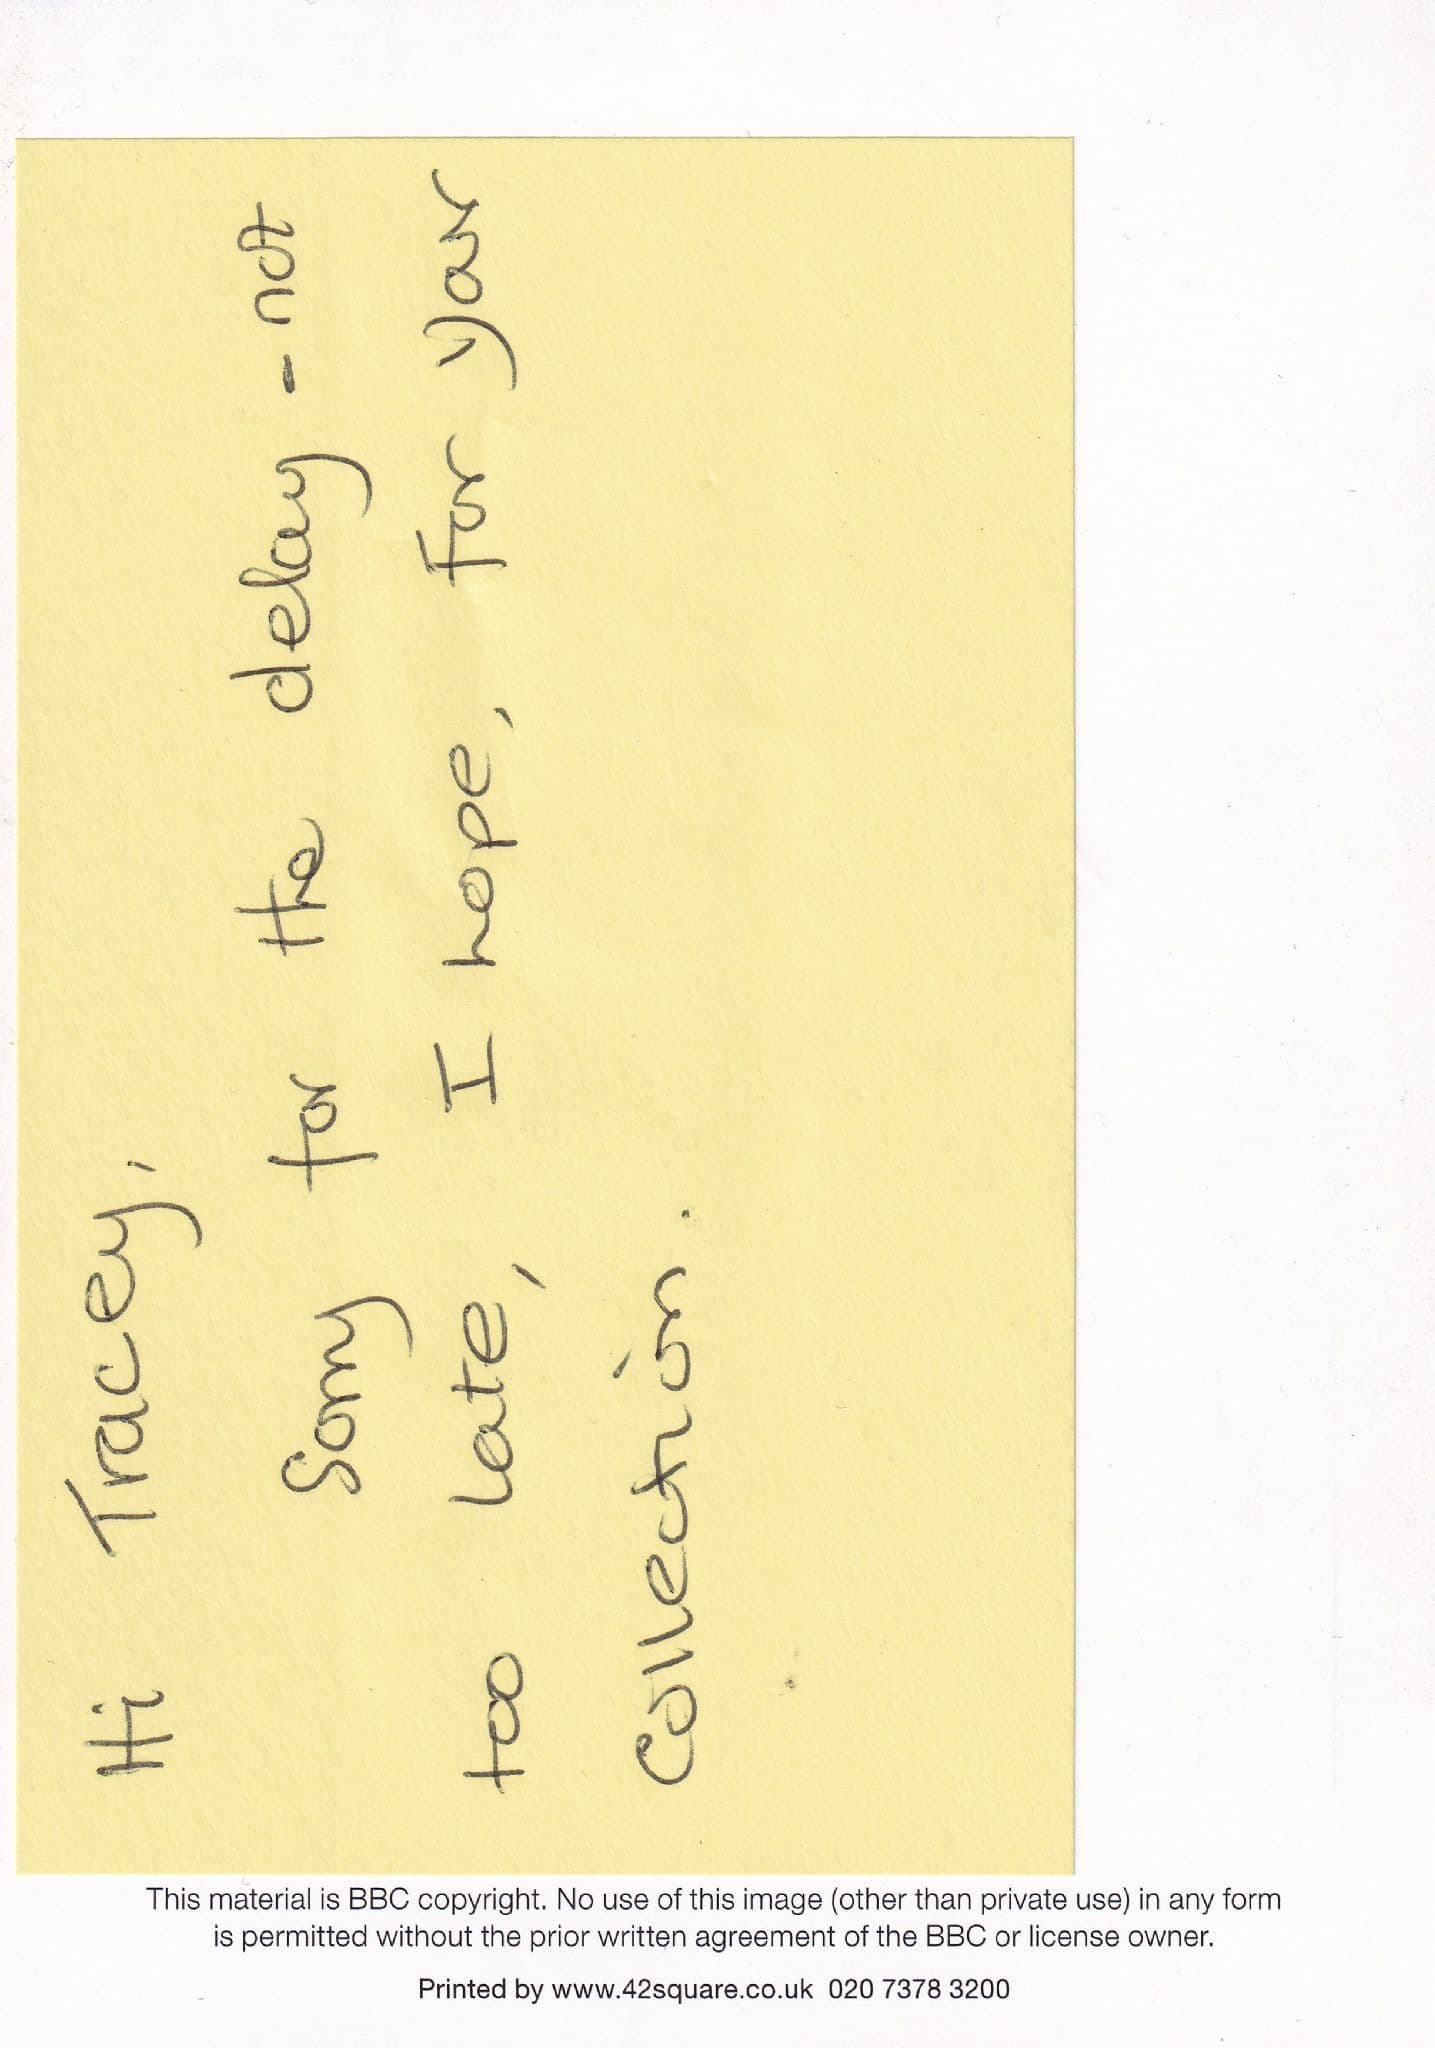 Hi Tracey,
Sorry for the delay - not
too late, I hope, For your
Collection.
This material is BBC copyright. No use of this image (other than private use) in any form
is permitted without the prior written agreement of the BBC or license owner.
Printed by www.42square.co.uk 020 7378 3200